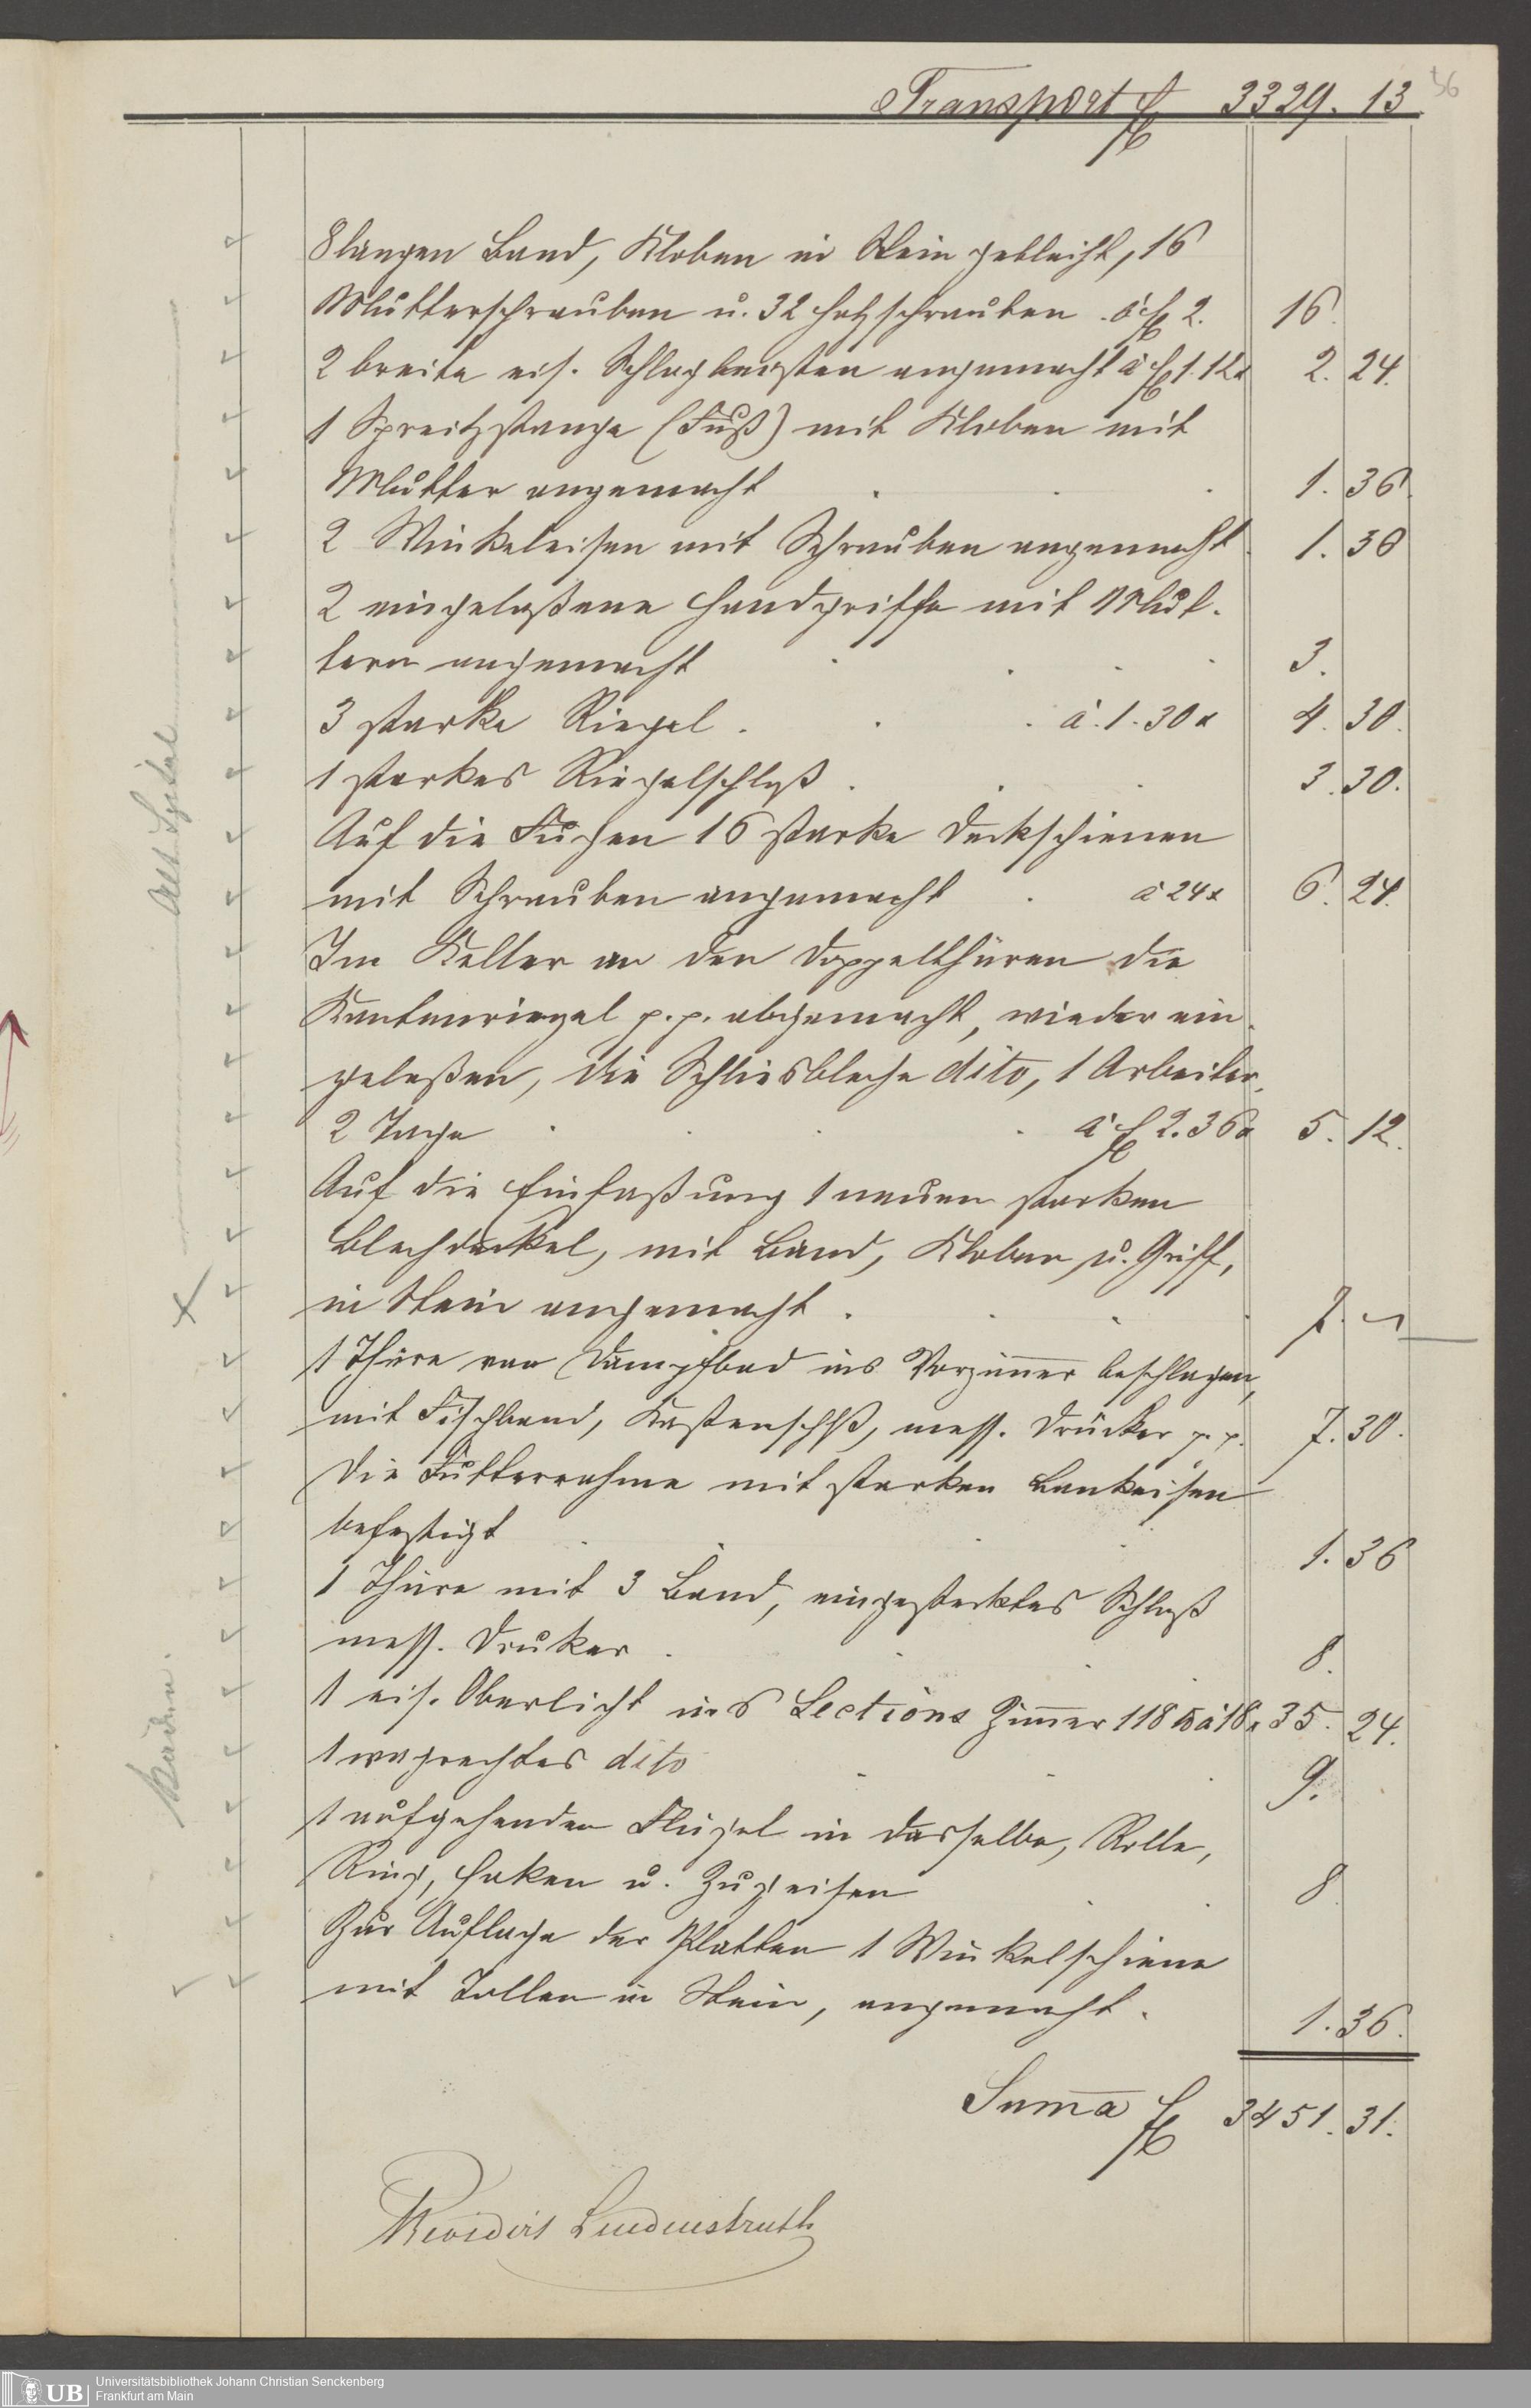 Transport f 3329. 13
36
8 langen Band, Kloben in Stein gebleiht, 16
Mutterschrauben u. 32 Holzschrauben à f 2. 16.
2 breite eis. Schlagleisten angemacht à f 1.12x 2. 24.
1 Spreitzstange (Fuß) mit Kloben mit
Mutter angemacht 1. 36.
2 Winkeleisen mit Schrauben angemacht 1. 30
2 eingelaßene Handgriffe mit Mut-
tern angemacht 3.
3 starke Riegel à 1.30x 4. 30.
1 starkes Riegelschloß 3. 30.
Auf die Fugen 16 starke Deckschienen
mit Schrauben angemacht à 24x 6. 24.
Im Keller an den Doppelthüren die
Kantenriegel p.p. abgemacht, wieder ein-
gelaßen, die Schliesbleche dito, 1 Arbeiter
2 Tage à f 2.36x 5. 12.
Auf die Einfaßung 1 neuen starken
Blechdeckel, mit Band, Kloben u. Griff,
in Stein angemacht 7. –
1 Thüre vom Dampfbad ins Vorzimmer beschlagen,
mit Fischband, Kastenschlß, mess. Drücker p.p. 7. 30.
Die Futterrahme mit starken Bankeisen
befestigt 1. 36
1 Thüre mit 3 Band, eingestecktes Schloß
mess. Druker 8.
1 eis. Oberlicht ins Sections Zimmer 118 ℔ à 18x 35. 24.
1 wagrechtes dito 9.
1 aufgehenden Flügel in dasselbe, Rolle,
Ring, Haken u. Zugeisen 8
Zur Auflage der Platten 1 Winkelschiene
mit Dollen in Stein, angemacht. 1. 36.
Suma f 3451. 31.
Revidirt Lindenstruth
Alt Spital
Baden.
UB
Universitätsbibliothek Johann Christian Senckenberg
Frankfurt am Main